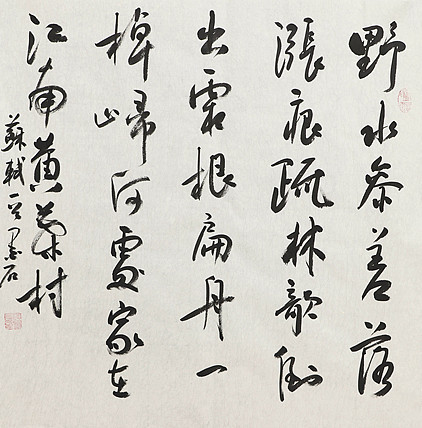 野水參差落
漲痕疏林欹倒
出霜根扁舟一
棹歸何處家在
江南黃葉村
蘇軾